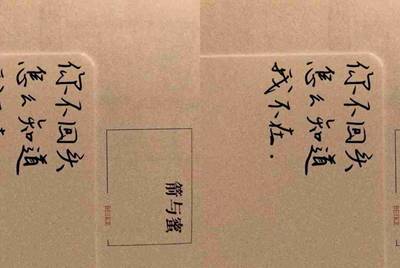 你不回头
怎么知道
箭与蜜
你不回头
怎么知道
我不在.